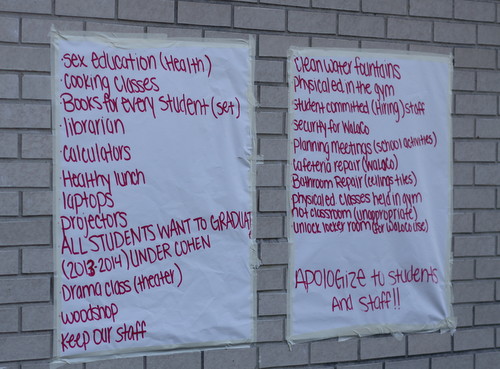 sex education (Health)
cooking classes
Books for every student (set)
librarian
calculators
Healthy lunch
laptops
projectors
ALL STUDENTS WANT TO GRADUATE
(2013-2014) UNDER COHEN
Drama class (theater)
woodshop
Keep our staff
clean water fountains
physical ed in the gym
student committed (Hiring) staff
security for Walaco
planning Meetings (school activities)
cafeteria repair (walaco)
Bathroom Repair (ceilings-tiles)
physicaled classes held in gym
not classroom (unappropriate)
unlock locker room (for Walaco use)
APOlOGize to students
And staff!!